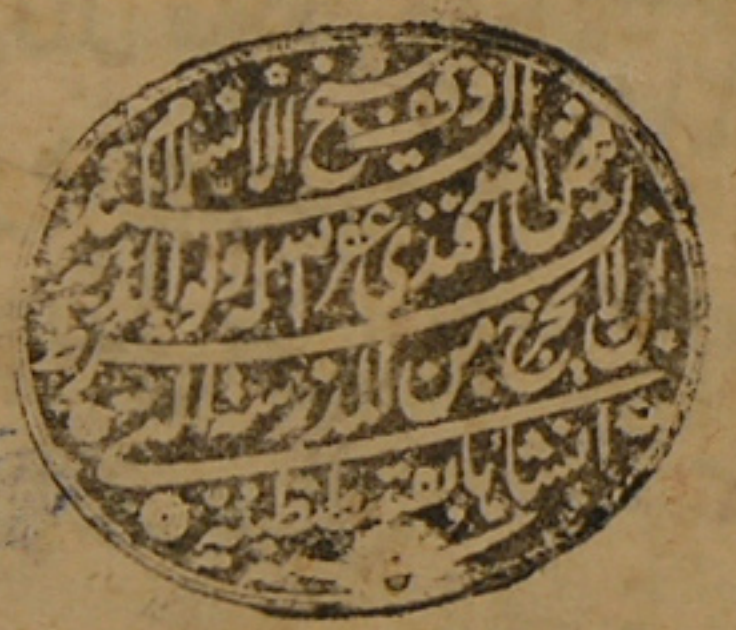 وقف شيخ الاسلام السيد
فيض الله افندي غفر الله له ولوالديه بشرط
ان لا يخرج من المدرسة التي
انشاها بقسطنطينية